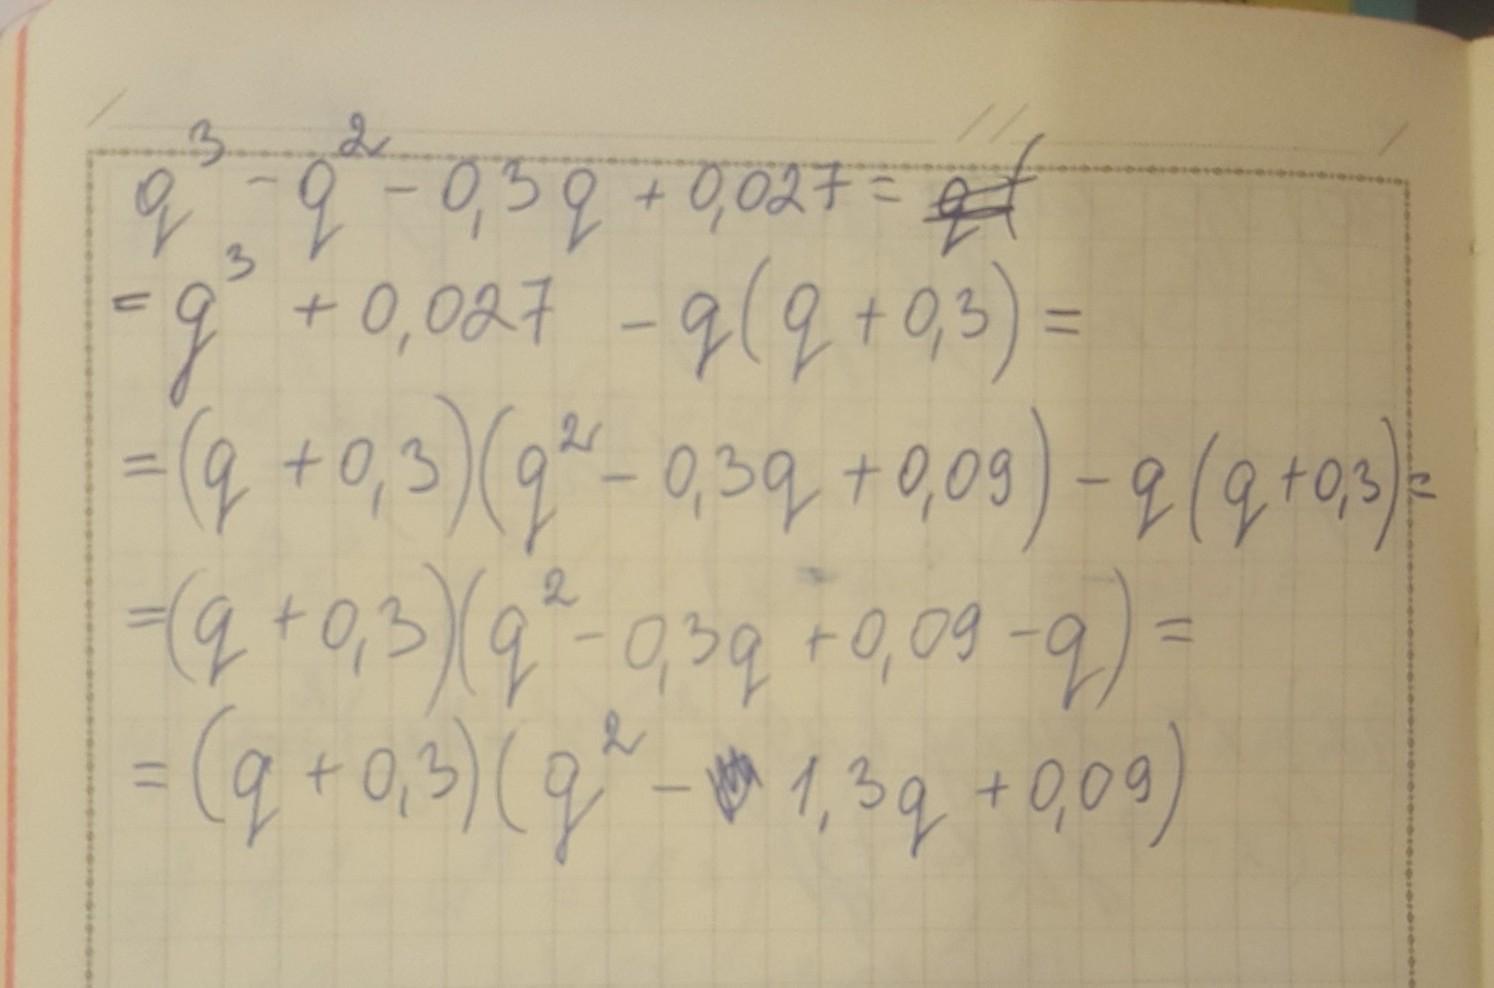 q³ - q² - 0,3q + 0,027 =
= q³ + 0,027 - q(q + 0,3) =
= (q + 0,3)(q² - 0,3q + 0,09) - q(q + 0,3) =
= (q + 0,3)(q² - 0,3q + 0,09 - q) =
= (q + 0,3)(q² - 1,3q + 0,09)